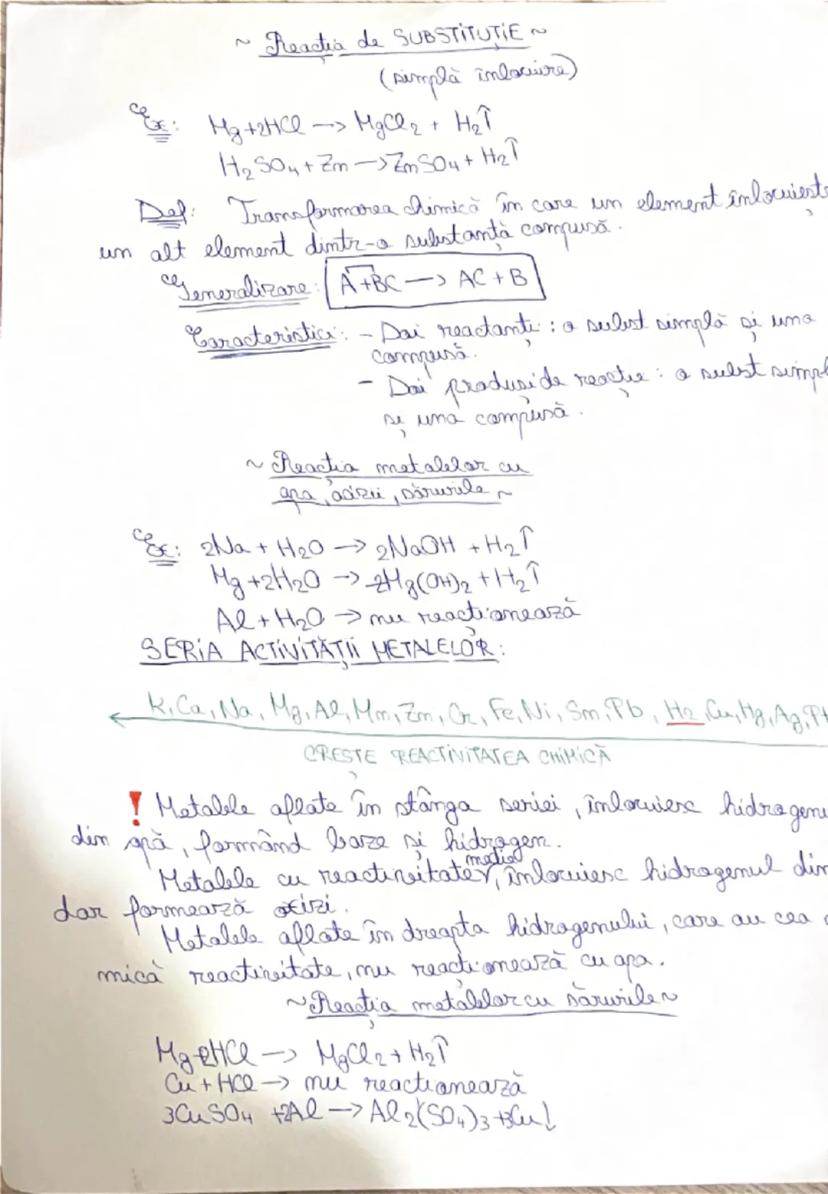 ~ Reacția de SUBSTITUȚIE ~
(simplă înlocuire)
Ex: Mg+2HCl → MgCl2 + H2↑
H2SO4 + Zn → ZnSO4 + H2↑
Def: Transformarea chimică în care un element înlocuiește
un alt element dintr-o substanță compusă.
Generalizare: A+BC → AC + B
Caracteristici: - Doi reactanți: o subst simplă și una
compusă.
- Doi produși de reacție: o subst simpl
și una compusă.
~ Reacția metalelor cu
apa, acizii, sărurile ~
Ex: 2Na + H2O → 2NaOH + H2↑
Mg+2H2O → Mg(OH)2 + H2↑
Al + H2O → nu reacționează
SERIA ACTIVITĂȚII METALELOR:
K, Ca, Na, Mg, Al, Mn, Zn, Cr, Fe, Ni, Sn, Pb, H2, Cu, Hg, Ag, Pt
CREȘTE REACTIVITATEA CHIMICĂ
! Metalele aflate în stânga seriei, înlocuiesc hidrogenu
din apă, formând baze și hidrogen.
Metalele cu reactivitate medie, înlocuiesc hidrogenul din
dar formează oxizi.
Metalele aflate în dreapta hidrogenului, care au cea
mică reactivitate, nu reacționează cu apa.
~ Reacția metalelor cu sărurile ~
Mg+2HCl → MgCl2 + H2↑
Cu + HCl → nu reacționează
3CuSO4 +2Al → Al2(SO4)3 +3Cu↓